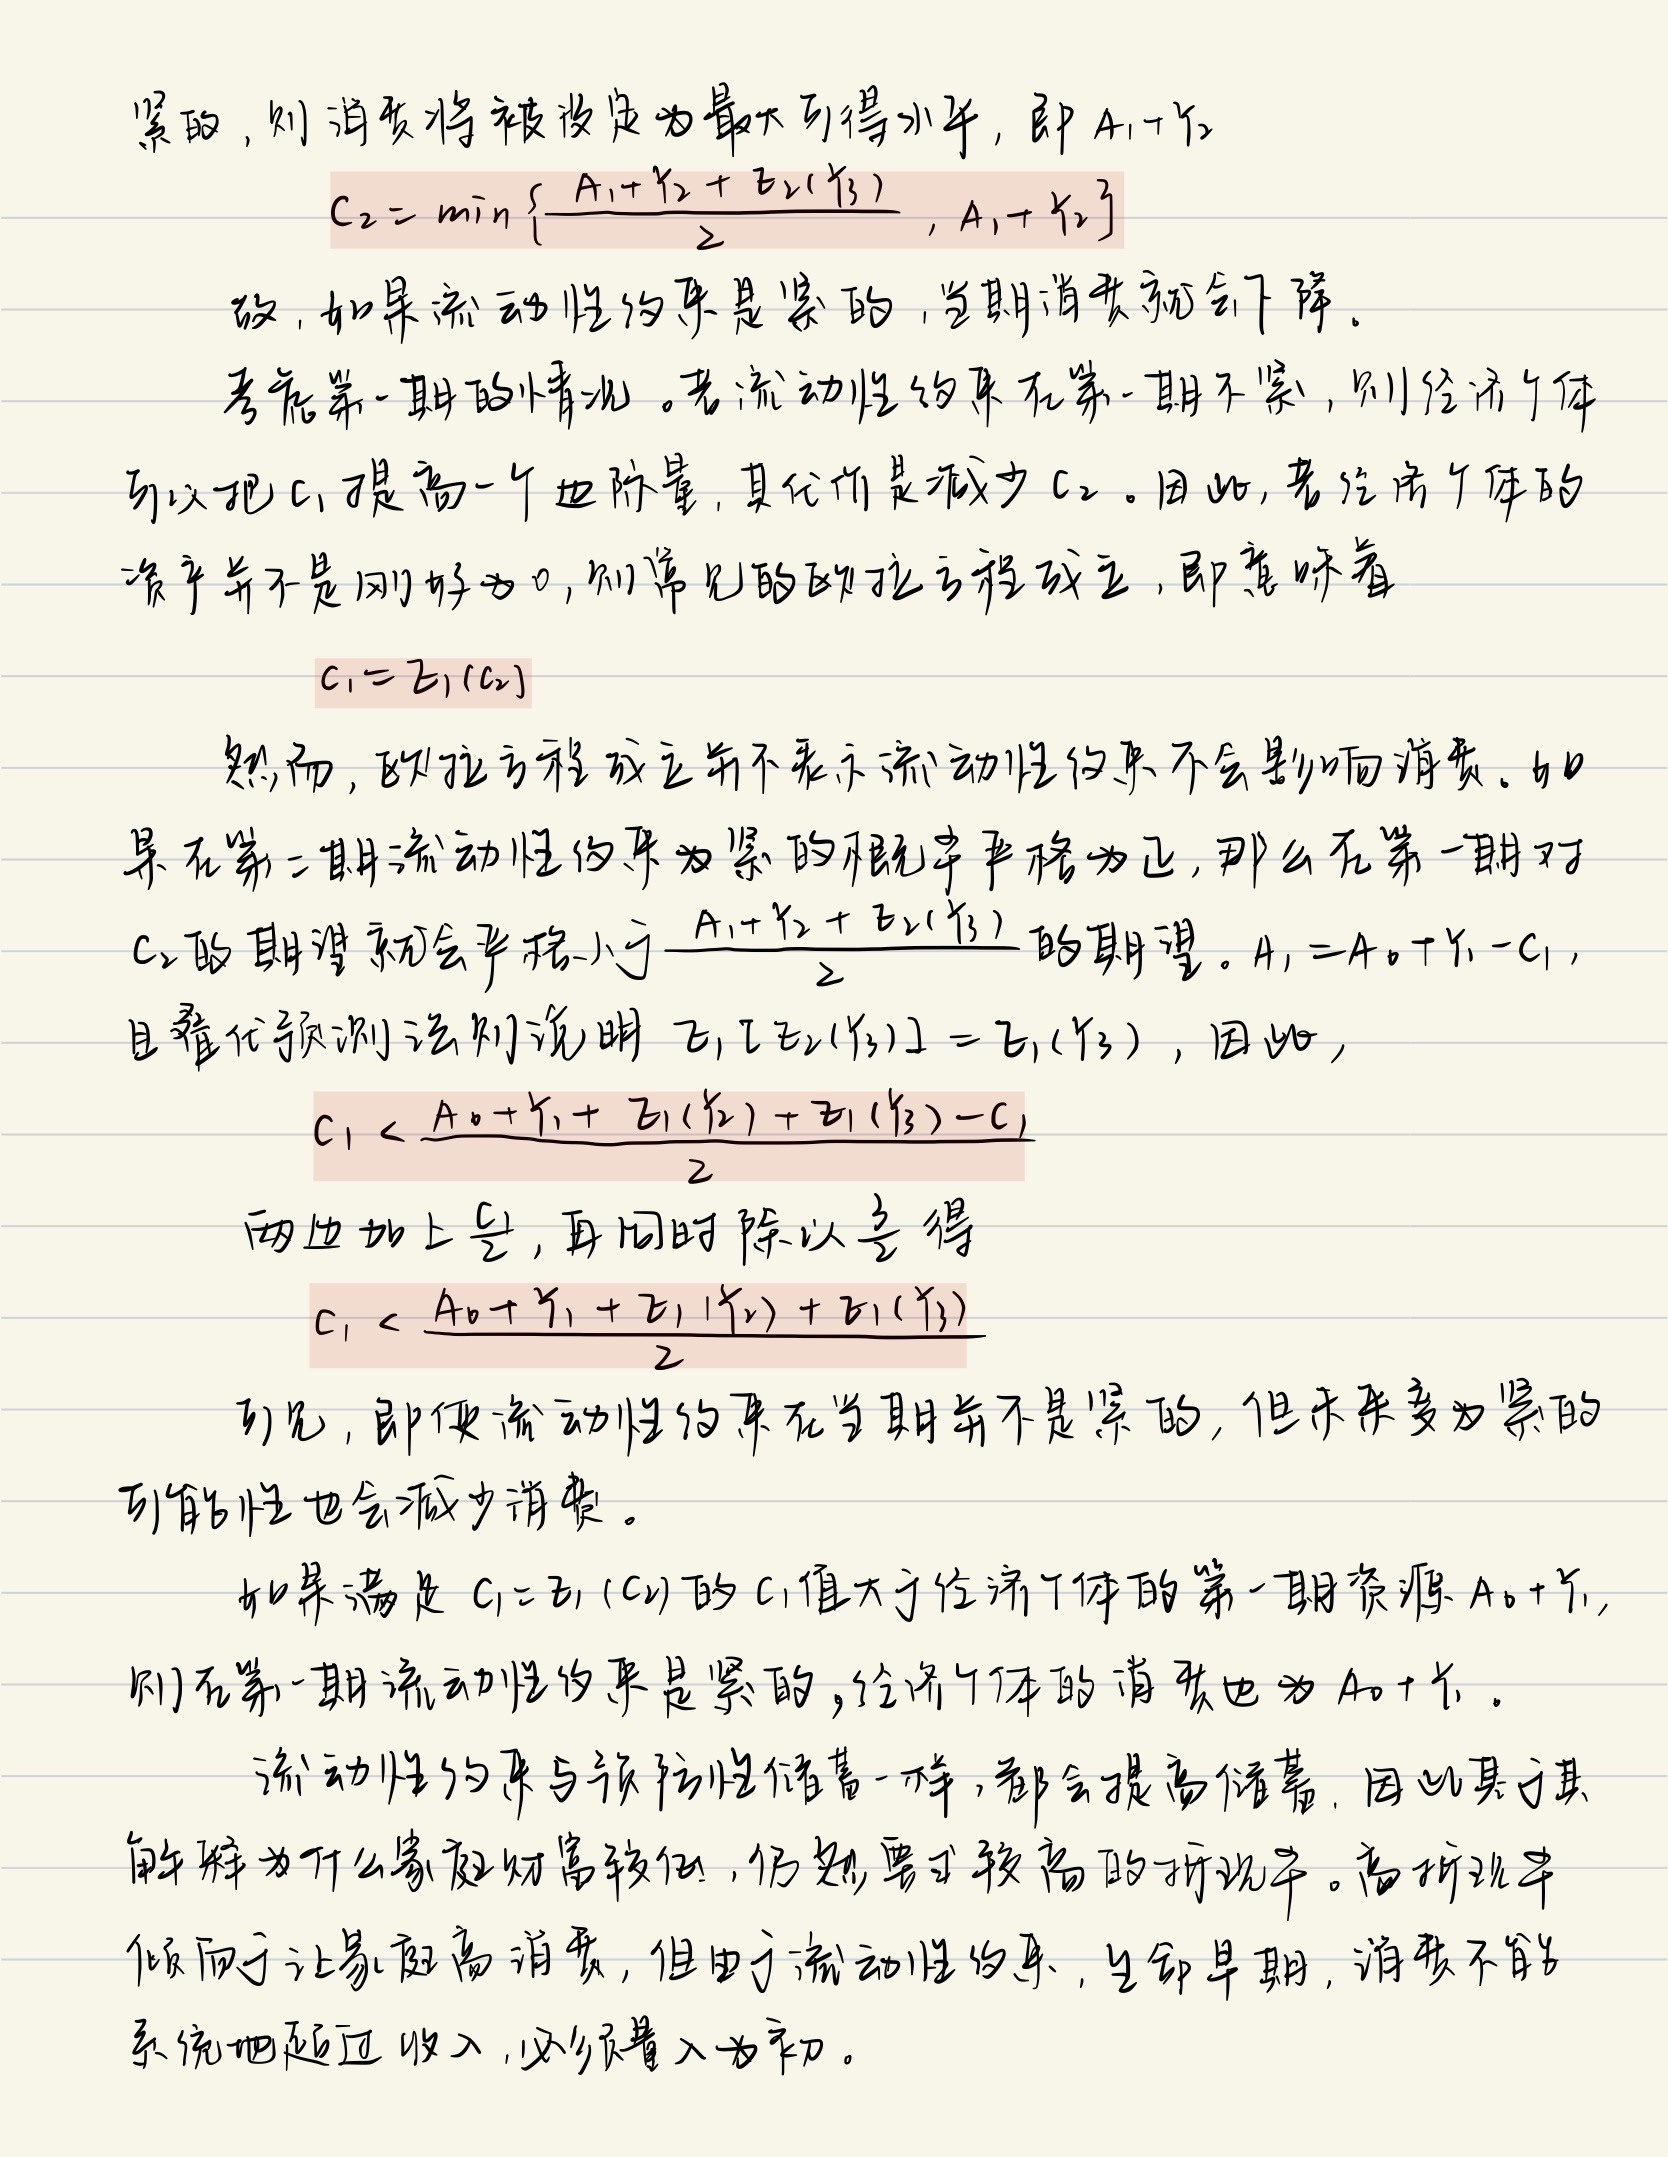 紧的，则消费将被设定为最大可得水平，即 A₁+Y₂
C₂ = min{ (A₁+Y₂+E₂(Y₃))/2 , A₁+Y₂ }
故，如果流动性约束是紧的，当期消费就会下降。
考虑第一期的情况。若流动性约束在第一期不紧，则经济个体
可以把 C₁ 提高一个边际量，其代价是减少 C₂。因此，若经济个体的
资产并不是刚好为0，则常见的欧拉方程成立，即意味着
C₁ = E₁(C₂)
然而，欧拉方程成立并不表示流动性约束不会影响消费。如
果在第二期流动性约束为紧的概率严格为正，那么在第一期对
C₂ 的期望就会严格小于 (A₁+Y₂+E₂(Y₃))/2 的期望。A₁ = A₀+Y₁-C₁，
且叠代预测法则说明 E₁[E₂(Y₃)] = E₁(Y₃)，因此，
C₁ < (A₀+Y₁+E₁(Y₂)+E₁(Y₃)-C₁)/2
两边加上 C₁/2，再同时除以 3/2 得
C₁ < (A₀+Y₁+E₁(Y₂)+E₁(Y₃))/2
可见，即使流动性约束在当期并不是紧的，但未来变为紧的
可能性也会减少消费。
如果满足 C₁=E₁(C₂) 的 C₁ 值大于经济个体的第一期资源 A₀+Y₁，
则在第一期流动性约束是紧的，经济个体的消费也为 A₀+Y₁。
流动性约束与预防性储蓄一样，都会提高储蓄，因此基于其
解释为什么家庭财富较低，仍然要求较高的折现率。高折现率
倾向于让家庭高消费，但由于流动性约束，生命早期，消费不能
系统地超过收入，必须量入为初。